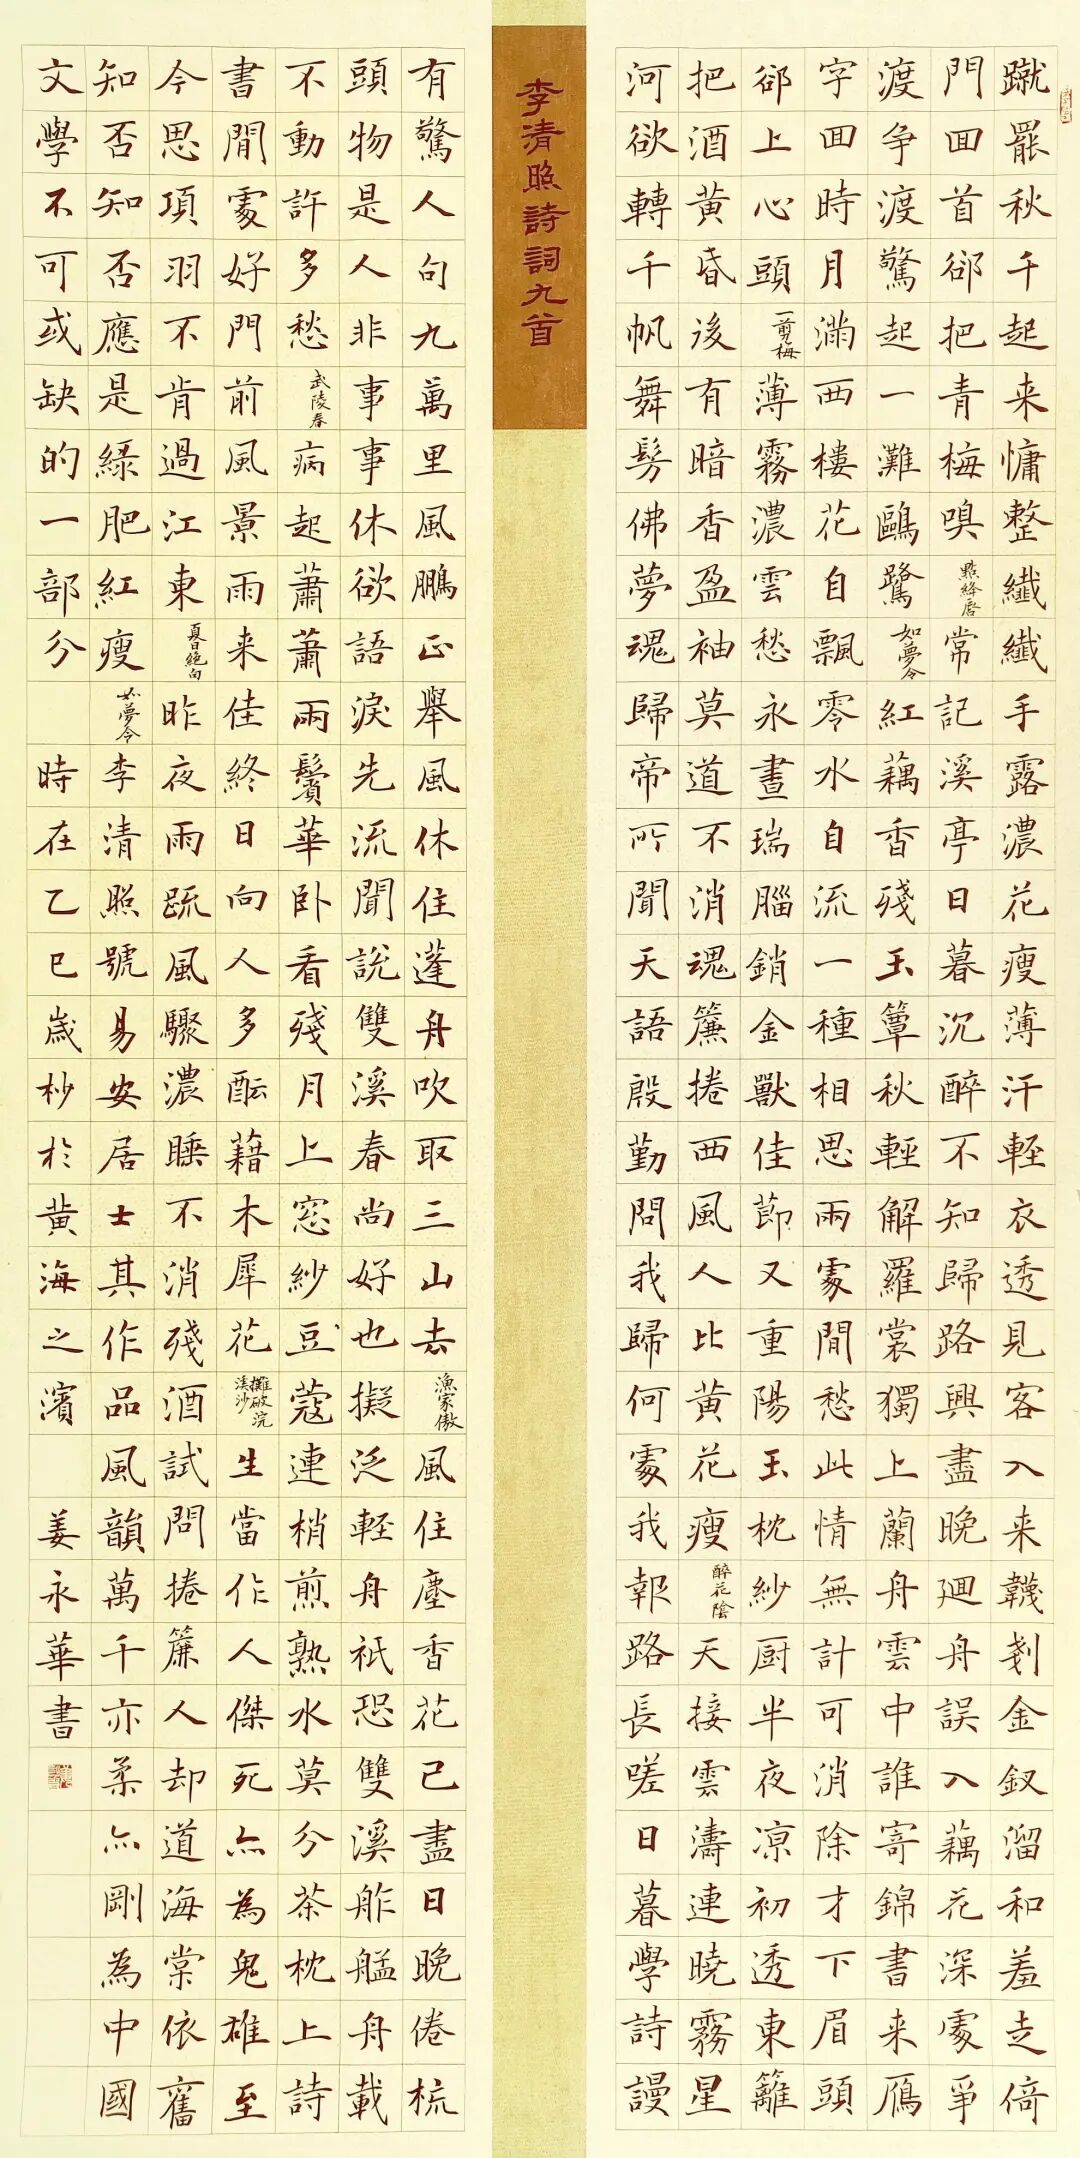 蹴罷秋千起来慵整纖纖手露濃花瘦薄汗輕衣透見客入来韈剗金釵溜和羞走倚
門囬首郤把青梅嗅 點絳唇 常記溪亭日暮沉醉不知歸路興盡晚迴舟誤入藕花深處爭
渡争渡驚起一灘鷗鷺 如夢令 紅藕香殘玉簟秋輕解羅裳獨上蘭舟雲中誰寄錦書来雁
字囬時月滿西樓花自飄零水自流一種相思兩處閒愁此情無計可消除才下眉頭
郤上心頭 一剪梅 薄霧濃雲愁永晝瑞腦銷金獸佳節又重陽玉枕紗厨半夜凉初透東籬
把酒黃昏後有暗香盈袖莫道不消魂簾捲西風人比黃花瘦 醉花陰 天接雲濤連曉霧星
河欲轉千帆舞髣佛夢魂歸帝所聞天語殷勤問我歸何處我報路長嗟日暮學詩謾
李清照詩詞九首
有驚人句九萬里風鵬正舉風休住蓬舟吹取三山去 漁家傲 風住塵香花已盡日晚倦梳
頭物是人非事事休欲語淚先流聞說雙溪春尚好也擬泛輕舟祇恐雙溪舴艋舟載
不動許多愁 武陵春 病起蕭蕭兩鬢華卧看殘月上窓紗豆蔻連梢煎熟水莫分茶枕上詩
書閒處好門前風景雨来佳終日向人多醞藉木犀花 攤破浣溪沙 生當作人傑死亦為鬼雄至
今思項羽不肯過江東 夏日絕句 昨夜雨疏風驟濃睡不消殘酒試問捲簾人却道海棠依舊
知否知否應是綠肥紅瘦 如夢令 李清照號易安居士其作品風韻萬千亦柔亦剛為中國
文學不可或缺的一部分 時在乙巳歲杪於黃海之濱 姜永華書